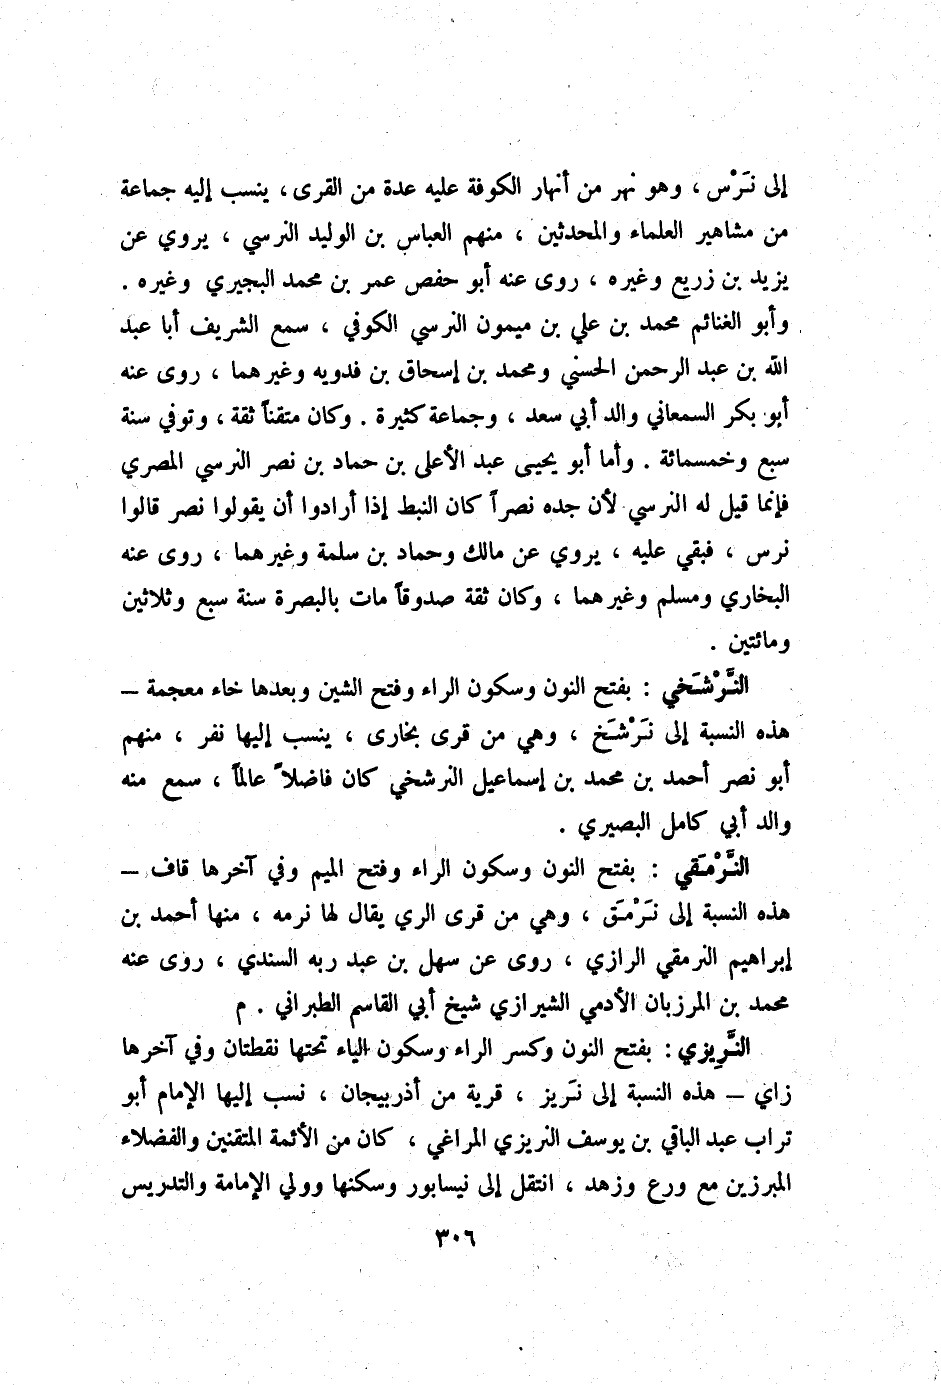 إلى نَرْس ، وهو نهر من أنهار الكوفة عليه عدة من القرى ، ينسب إليه جماعة
من مشاهير العلماء والمحدثين ، منهم العباس بن الوليد النرسي ، يروي عن
يزيد بن زريع وغيره ، روى عنه أبو حفص عمر بن محمد البجيري وغيره .
وأبو الغنائم محمد بن علي بن ميمون النرسي الكوفي ، سمع الشريف أبا عبد
الله بن عبد الرحمن الحسني ومحمد بن إسحاق بن فدويه وغيرهما ، روى عنه
أبو بكر السمعاني والد أبي سعد ، وجماعة كثيرة . وكان متقناً ثقة ، وتوفي سنة
سبع وخمسمائة . وأما أبو يحيى عبد الأعلى بن حماد بن نصر النرسي المصري
فإنما قيل له النرسي لأن جده نصراً كان النبط إذا أرادوا أن يقولوا نصر قالوا
نرس ، فبقي عليه ، يروي عن مالك وحماد بن سلمة وغيرهما ، روى عنه
البخاري ومسلم وغيرهما ، وكان ثقة صدوقاً مات بالبصرة سنة سبع وثلاثين
ومائتين .
النَّرْشَخي : بفتح النون وسكون الراء وفتح الشين وبعدها خاء معجمة –
هذه النسبة إلى نَرْشَخ ، وهي من قرى بخارى ، ينسب إليها نفر ، منهم
أبو نصر أحمد بن محمد بن إسماعيل النرشخي كان فاضلاً عالماً ، سمع منه
والد أبي كامل البصيري .
النَّرْمَقي : بفتح النون وسكون الراء وفتح الميم وفي آخرها قاف –
هذه النسبة إلى نَرْمَق ، وهي من قرى الري يقال لها نرمه ، منها أحمد بن
إبراهيم النرمقي الرازي ، روى عن سهل بن عبد ربه السندي ، روى عنه
محمد بن المرزبان الأدمي الشيرازي شيخ أبي القاسم الطبراني . م
النَّرِيزي : بفتح النون وكسر الراء وسكون الياء تحتها نقطتان وفي آخرها
زاي – هذه النسبة إلى نَريز ، قرية من أذربيجان ، نسب إليها الإمام أبو
تراب عبد الباقي بن يوسف النريزي المراغي ، كان من الأئمة المتقنين والفضلاء
المبرزين مع ورع وزهد ، انتقل إلى نيسابور وسكنها وولي الإمامة والتدريس
٣٠٦